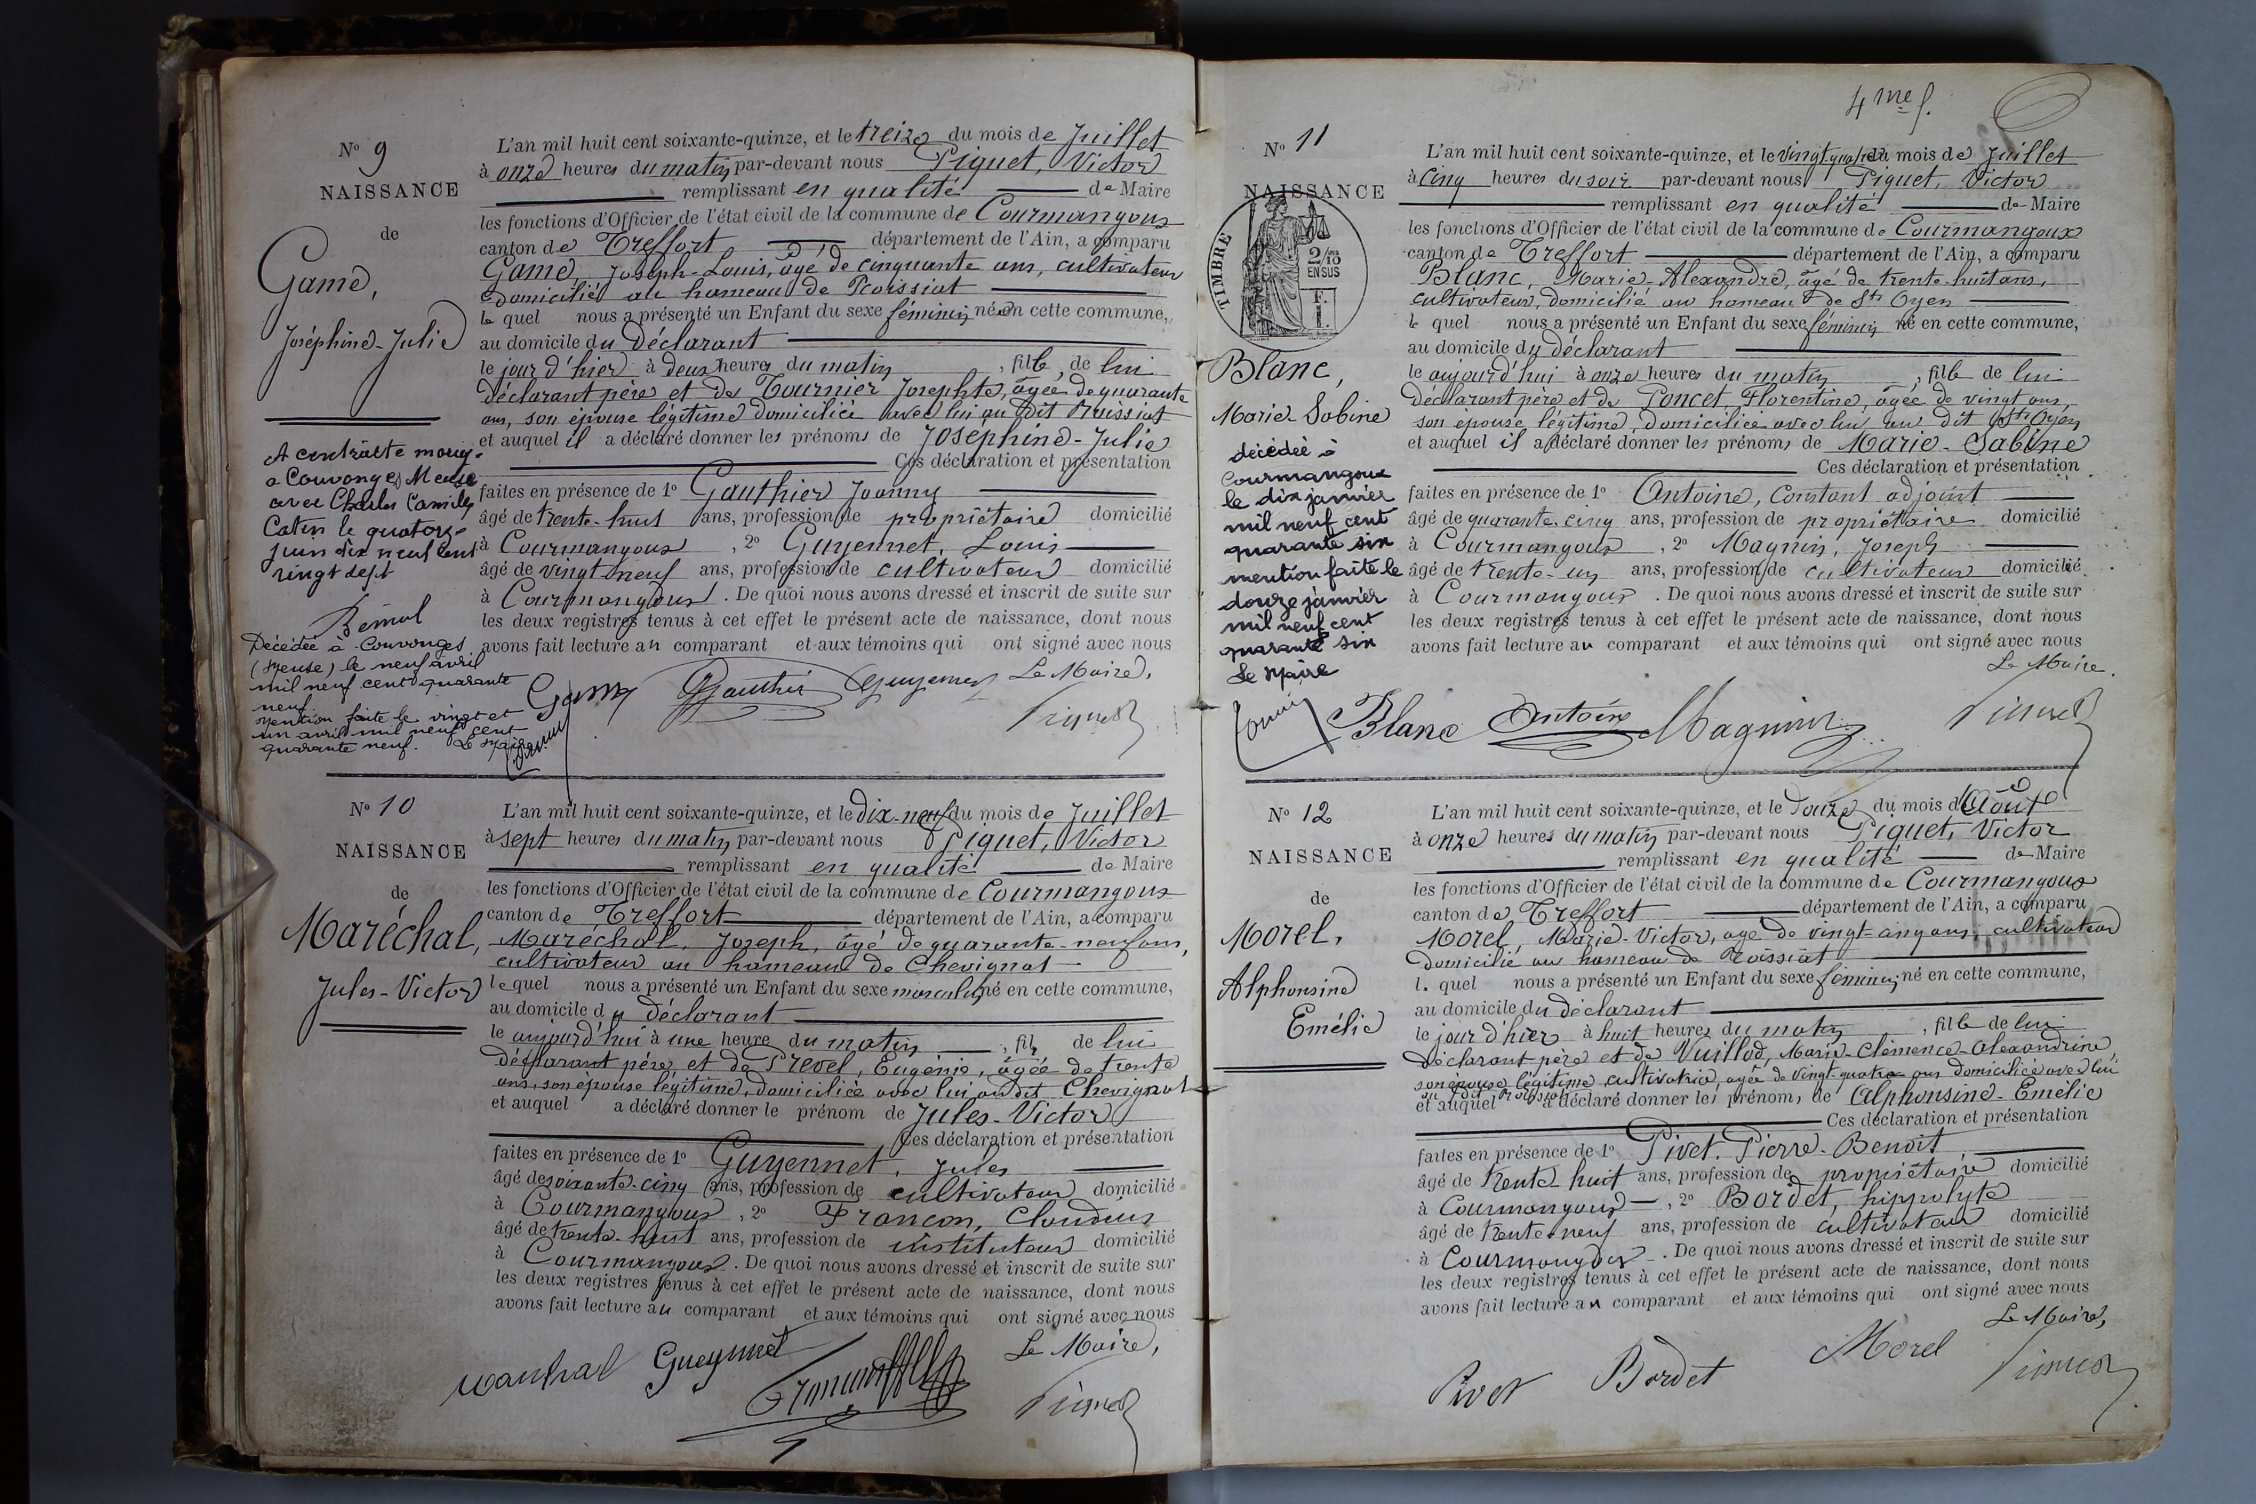 N° 9
NAISSANCE
de
Game,
Joséphine-Julie
L'an mil huit cent soixante-quinze, et le treize du mois de Juillet
à onze heures du matin par-devant nous Piguet, Victor
remplissant en qualité de Maire
les fonctions d'Officier de l'état civil de la commune de Courmangoux
canton de Treffort département de l'Ain, a comparu
Game, Joseph-Louis, âgé de cinquante ans, cultivateur
domicilié au hameau de Roissiat
le quel nous a présenté un Enfant du sexe féminin né en cette commune,
au domicile du déclarant
le jour d'hier à deux heures du matin, fille de lui
déclarant père et de Tournier Josephte, âgée de quarante
ans, son épouse légitime domiciliée avec lui au dit Roissiat
et auquel il a déclaré donner les prénoms de Joséphine-Julie
Ces déclaration et présentation
faites en présence de 1° Gauthier Joanny
âgé de trente-huit ans, profession de propriétaire domicilié
à Courmangoux, 2° Guyennet, Louis
âgé de vingt neuf ans, profession de cultivateur domicilié
à Courmangoux. De quoi nous avons dressé et inscrit de suite sur
les deux registres tenus à cet effet le présent acte de naissance, dont nous
avons fait lecture au comparant et aux témoins qui ont signé avec nous
Le Maire,
Game Gauthier Guyennet Piguet
A contracté mariage
a Couvonges Meuse
avec Charles Camille
Catin le quatorze
juin dix neuf cent
vingt sept
Décédée à Couvonges
(Meuse) le neuf avril
mil neuf cent quarante
neuf
Mention faite le vingt et
un avril mil neuf cent
quarante neuf. Le Maire
N° 10
NAISSANCE
de
Maréchal,
Jules-Victor
L'an mil huit cent soixante-quinze, et le dix-neuf du mois de Juillet
à sept heures du matin par-devant nous Piguet, Victor
remplissant en qualité de Maire
les fonctions d'Officier de l'état civil de la commune de Courmangoux
canton de Treffort département de l'Ain, a comparu
Maréchal, Joseph, âgé de quarante-neuf ans,
cultivateur au hameau de Chevignat
lequel nous a présenté un Enfant du sexe masculin né en cette commune,
au domicile du déclarant
le aujourd'hui à une heure du matin, fils de lui
déclarant père, et de Prevel, Eugénie, âgée de trente
ans, son épouse légitime, domiciliée avec lui au dit Chevignat
et auquel a déclaré donner le prénom de Jules-Victor
Ces déclaration et présentation
faites en présence de 1° Guyennet, Jules
âgé de soixante-cinq ans, profession de cultivateur domicilié
à Courmangoux, 2° Francon, Claudius
âgé de trente-huit ans, profession de instituteur domicilié
à Courmangoux. De quoi nous avons dressé et inscrit de suite sur
les deux registres tenus à cet effet le présent acte de naissance, dont nous
avons fait lecture au comparant et aux témoins qui ont signé avec nous
Le Maire,
Marechal Gueynnet Piguet
4me f.
N° 11
NAISSANCE
TIMBRE
2/10 EN SUS
Blanc,
Marie Sabine
L'an mil huit cent soixante-quinze, et le vingt quatre du mois de Juillet
à cinq heures du soir par-devant nous Piguet, Victor
remplissant en qualité de Maire
les fonctions d'Officier de l'état civil de la commune de Courmangoux
canton de Treffort département de l'Ain, a comparu
Blanc, Marie-Alexandre, âgé de trente-huit ans,
cultivateur, domicilié au hameau de St Oyen
le quel nous a présenté un Enfant du sexe féminin né en cette commune,
au domicile du déclarant
le aujourd'hui à onze heures du matin, fille de lui
déclarant père et de Poncet, Florentine, âgée de vingt ans,
son épouse légitime, domiciliée avec lui au dit St Oyen
et auquel il a déclaré donner les prénoms de Marie-Sabine
Ces déclaration et présentation
faites en présence de 1° Antoine, Constant adjoint
âgé de quarante-cinq ans, profession de propriétaire domicilié
à Courmangoux, 2° Magnin, Joseph
âgé de trente-un ans, profession de cultivateur domicilié
à Courmangoux. De quoi nous avons dressé et inscrit de suite sur
les deux registres tenus à cet effet le présent acte de naissance, dont nous
avons fait lecture au comparant et aux témoins qui ont signé avec nous
Le Maire.
Blanc Antoine Magnin Piguet
décédée à
Courmangoux
le dix janvier
mil neuf cent
quarante six
mention faite le
douze janvier
mil neuf cent
quarante six
Le Maire
N° 12
NAISSANCE
de
Morel,
Alphonsine
Emélie
L'an mil huit cent soixante-quinze, et le douze du mois d'Août
à onze heures du matin par-devant nous Piguet, Victor
remplissant en qualité de Maire
les fonctions d'Officier de l'état civil de la commune de Courmangoux
canton de Treffort département de l'Ain, a comparu
Morel, Marie-Victor, âgé de vingt-cinq ans, cultivateur
domicilié au hameau de Roissiat
l. quel nous a présenté un Enfant du sexe féminin né en cette commune,
au domicile du déclarant
le jour d'hier à huit heures du matin, fille de lui
déclarant père et de Vuillod, Marie-Clémence-Alexandrine,
son épouse légitime cultivatrice, âgée de vingt-quatre ans domiciliée avec lui
au dit Roissiat
et auquel a déclaré donner les prénoms de Alphonsine-Emélie
Ces déclaration et présentation
faites en présence de 1° Pivet, Pierre-Benoit
âgé de trente-huit ans, profession de propriétaire domicilié
à Courmangoux, 2° Bordet, hippolyte
âgé de trente-neuf ans, profession de cultivateur domicilié
à Courmangoux. De quoi nous avons dressé et inscrit de suite sur
les deux registres tenus à cet effet le présent acte de naissance, dont nous
avons fait lecture au comparant et aux témoins qui ont signé avec nous
Le Maire,
Pivet Bordet Morel Piguet